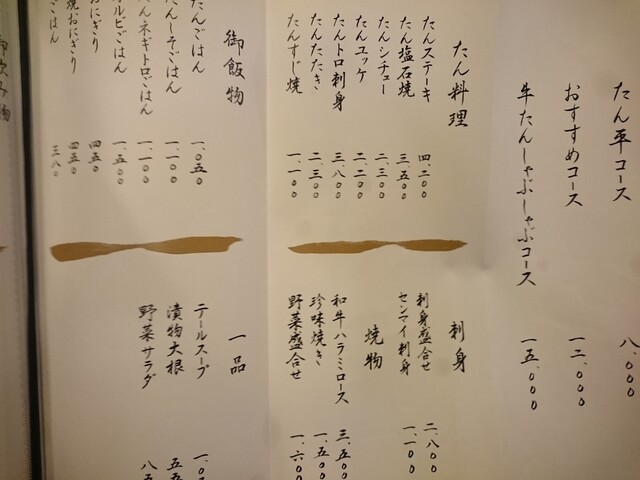 たん平コース 八、〇〇〇
おすすめコース 一二、〇〇〇
牛たんしゃぶしゃぶコース 一五、〇〇〇
たん料理
たんステーキ 四二〇〇
たん塩石焼 三、五〇〇
たんシチュー 二、三〇〇
たんユッケ 二、二〇〇
たんトロ刺身 三、八〇〇
たんたたき 二、三〇〇
たんすじ焼 一、一〇〇
刺身
刺身盛合せ 二、八〇〇
センマイ刺身 一、一〇〇
焼物
和牛ハラミロース 三、五〇〇
珍味焼き 一、五〇〇
野菜盛合せ 一、六〇〇
御飯物
たんごはん 一、〇五〇
たんしそごはん 一、一〇〇
たんネギトロごはん 一、一〇〇
ルビごはん 一、五〇〇
おにぎり 四五〇
焼おにぎり 四五〇
ごはん 三八〇
一品
テールスープ
漬物大根
野菜サラダ
御飲み物